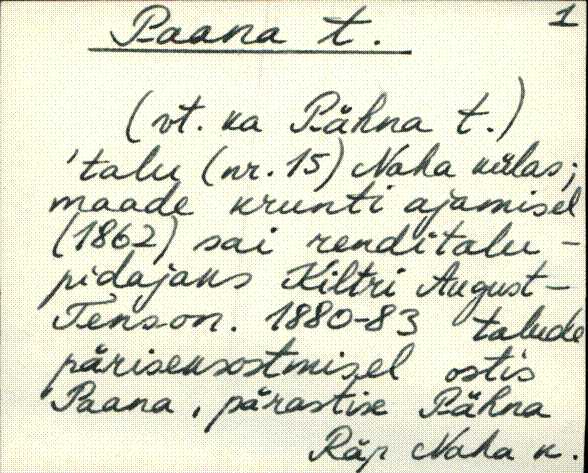 Paana t. 1
(vt. ka Pähna t.)
'talu (nr. 15) Naha külas;
maade krunti ajamisel
(1862) sai renditalu-
pidajaks Kiltri August-
Tenson. 1880-83 talude
päriseksostmisel ostis
Paana, pärastise Pähna
Räp Naha k.